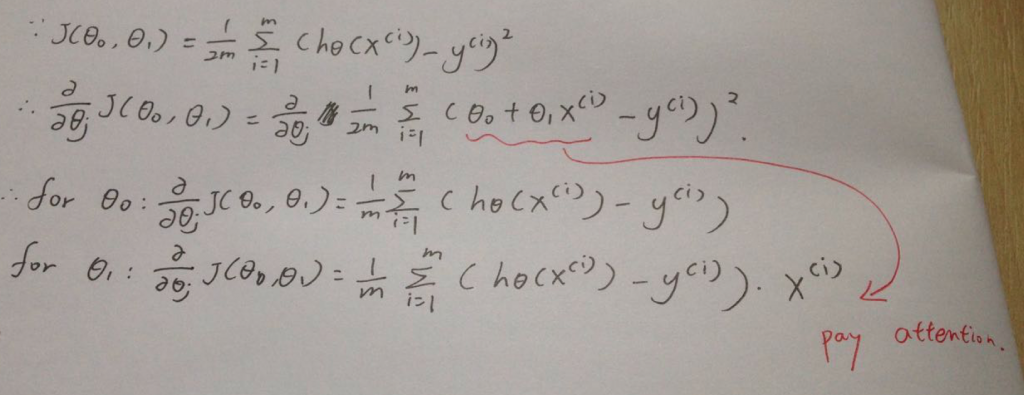 ∵ J(θ₀, θ₁) = 1/2m Σᵢ₌₁ᵐ (hθ(x⁽ⁱ⁾) - y⁽ⁱ⁾)²
∴ ∂/∂θⱼ J(θ₀, θ₁) = ∂/∂θⱼ 1/2m Σᵢ₌₁ᵐ (θ₀ + θ₁x⁽ⁱ⁾ - y⁽ⁱ⁾))².
∴ for θ₀: ∂/∂θⱼ J(θ₀, θ₁) = 1/m Σᵢ₌₁ᵐ (hθ(x⁽ⁱ⁾) - y⁽ⁱ⁾)
for θ₁: ∂/∂θⱼ J(θ₀, θ₁) = 1/m Σᵢ₌₁ᵐ (hθ(x⁽ⁱ⁾) - y⁽ⁱ⁾) · x⁽ⁱ⁾
pay attention.